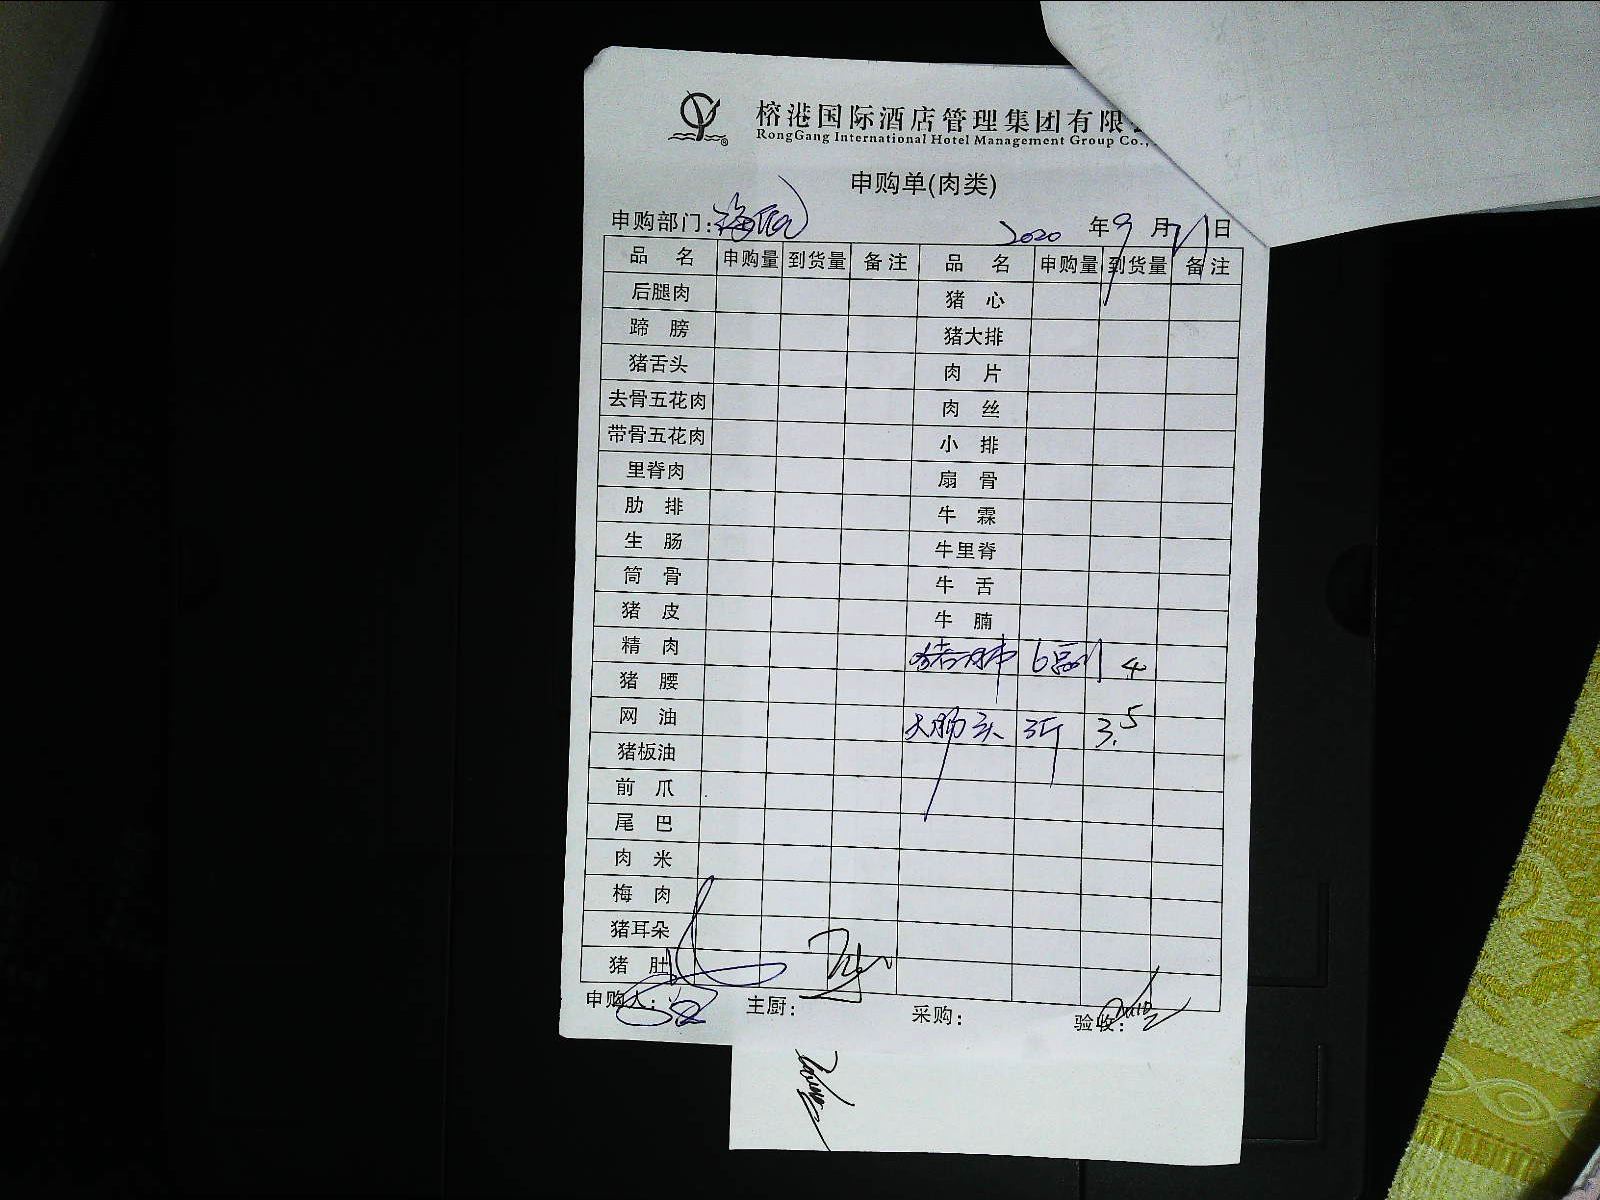 榕港国际酒店管理集团有限
RongGang International Hotel Management Group Co.,
申购单(肉类)
申购部门:
2020 年 9 月 21 日
品 名 申购量 到货量 备注 品 名 申购量 到货量 备注
后腿肉 猪 心
蹄 膀 猪大排
猪舌头 肉 片
去骨五花肉 肉 丝
带骨五花肉 小 排
里脊肉 扇 骨
肋 排 牛 霖
生 肠 牛里脊
筒 骨 牛 舌
猪 皮 牛 腩
精 肉 猪肺 6副 4
猪 腰
网 油 大肠头 3斤 3.5
猪板油
前 爪
尾 巴
肉 米
梅 肉
猪耳朵
猪 肚
申购人: 主厨: 采购: 验收: